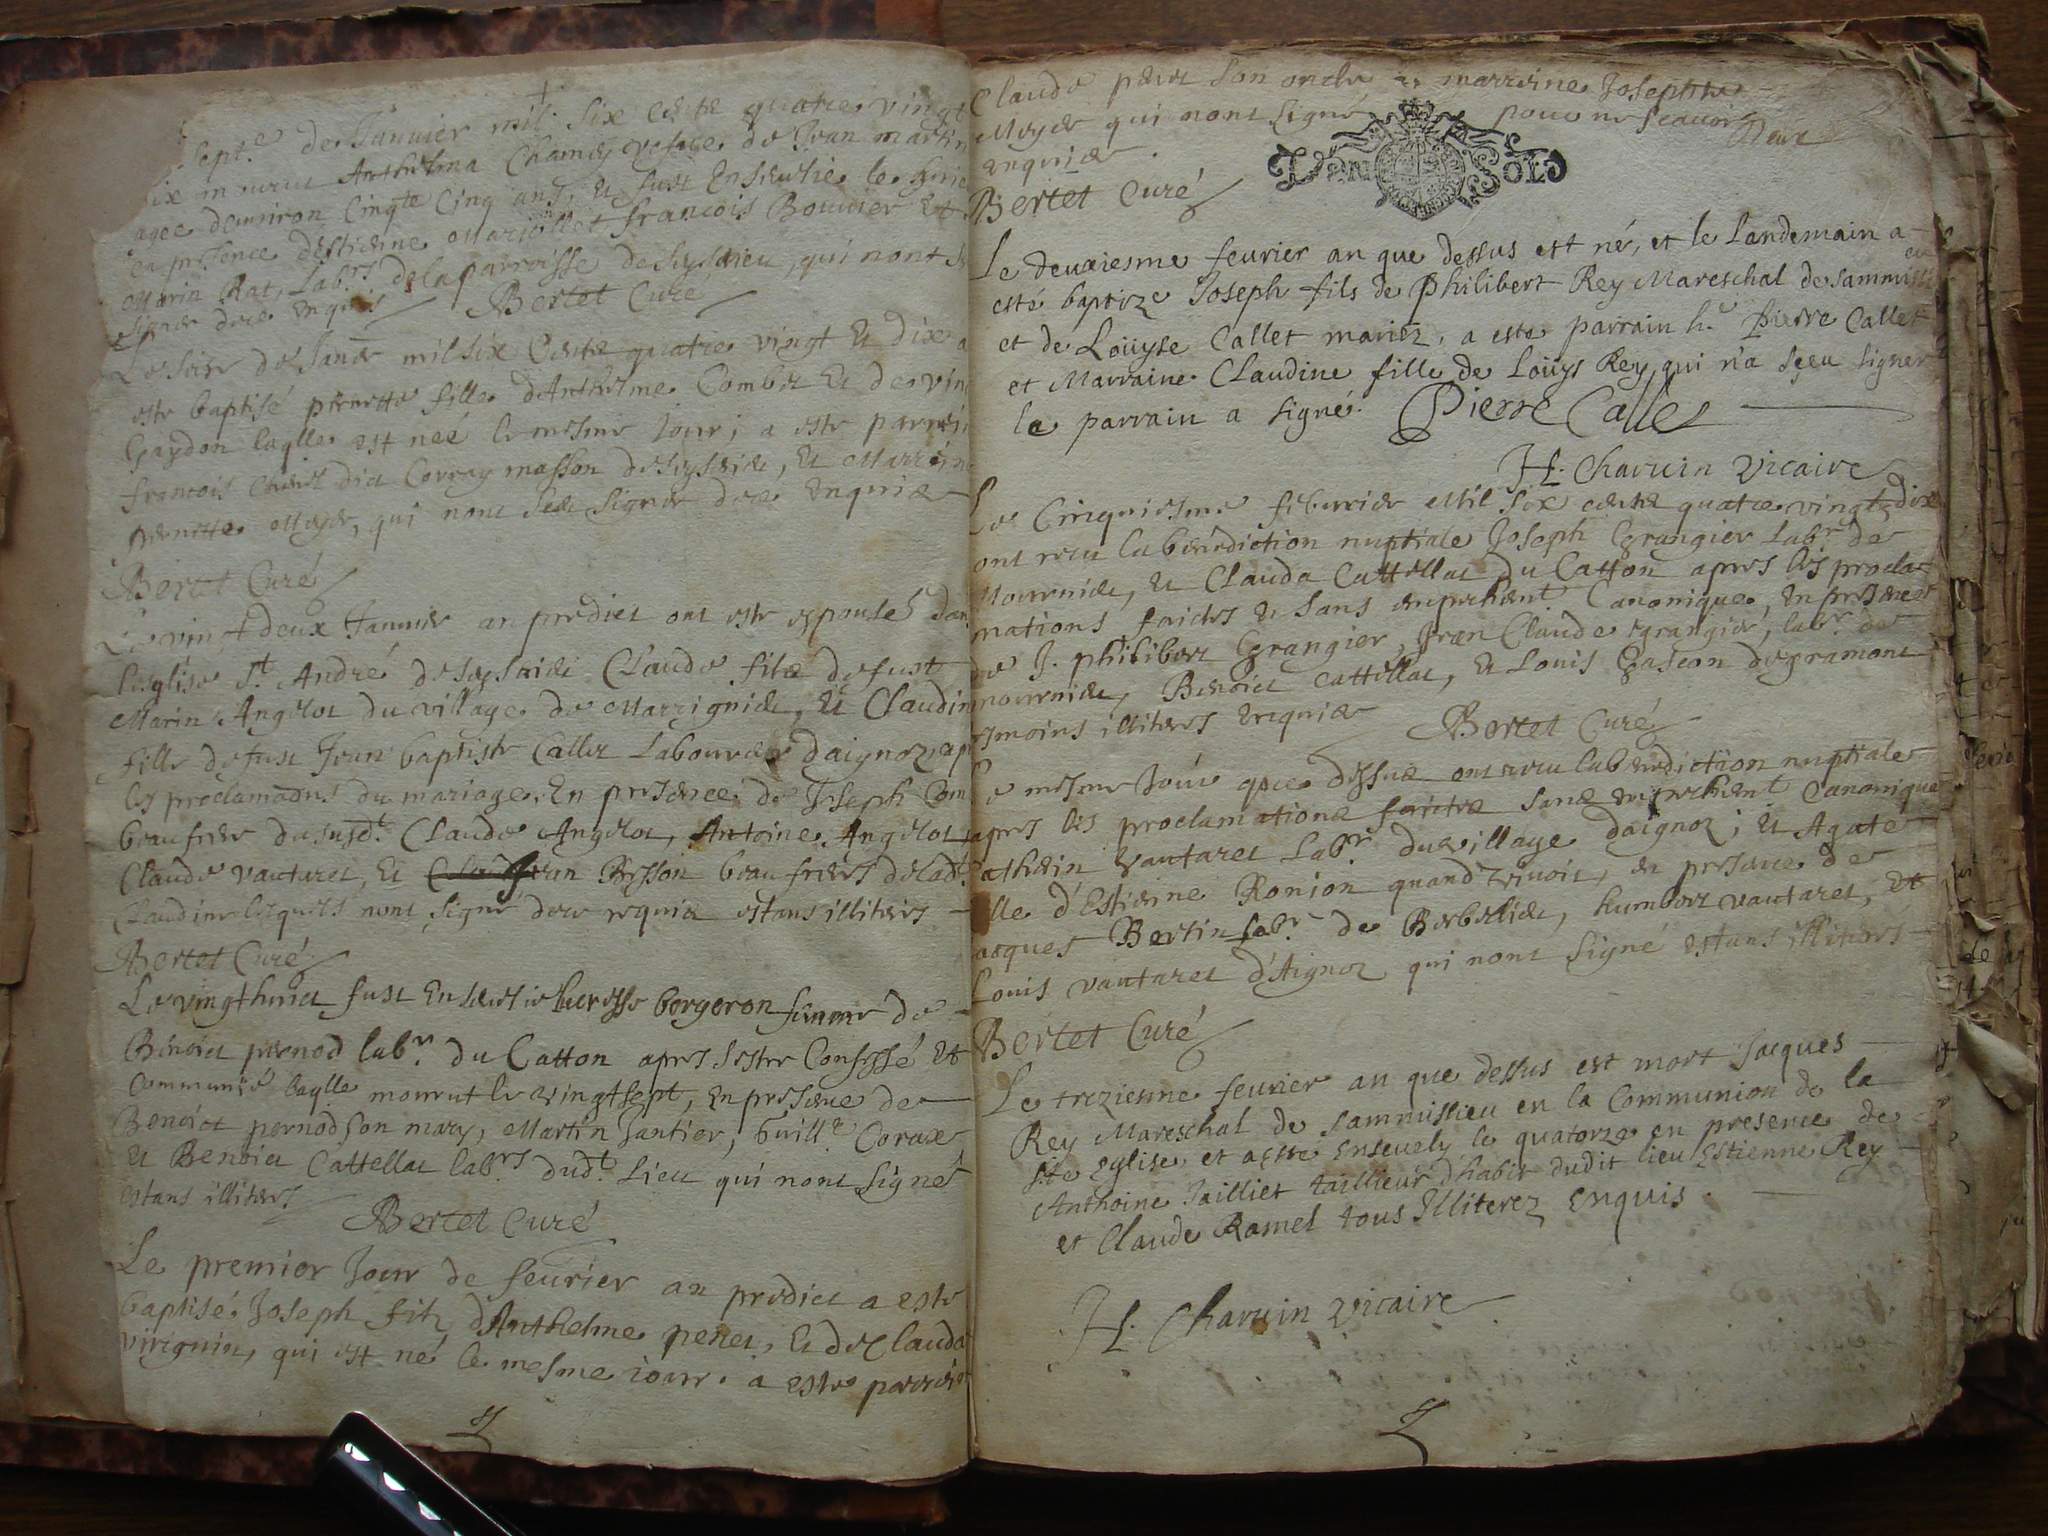 Septe de Janvier mil six cents quatre vingt
dix mourut Anthelma Chamey vefve de Jean martin
agee denuiron Cinqte Cinq ans, et fust Ensevelie le
en presence destienne Mariollet francois Bouvier Et
Marin Rat, Labrs de la parroisse de Seyssieu, qui nont
signer
Bertet Curé
mil six Cents quatre vingt et dix a
este baptisé pernette fille d'Anthelme Combet et de
Gaydon laqlle est neé le mesme jour, a este parrein
francois dict Corray masson de Seyssieu, et Marreine
pernette Meyer, qui nont signer enquis
Bertet Curé
Le vingt deux Janvier an predict ont este espousés dans
l'esglise St André de Seyssieu Claude filz de fust
Marin Angelot du village de Marrignieu, et Claudine
fille de fust Jean baptiste Callet Laboureur daignoz apres
les proclamaons du mariage, En presence de Joseph
beaufrere du susdt Claude Angelot, Antoine Angelot
Claude vautaret, et Jean Besson beaufreres de ladt
Claudine lesquels nont signé de ce requis estans illiteres
Bertet Curé
Le vingthuict fust Ensevelie lucresse bergeron femme de
Benoict pernod labr du Catton apres sestre Confessé et
Communié laqlle mourut le vingtsept, en presence de
Benoict pernod son mary, Martin Jantier, Guille Coraux
et Benoict Cattellat labrs dudt Lieu qui nont signé
estans illiteres
Bertet Curé
Le premier Jour de feurier an predict a este
baptisé Joseph filz d'Anthelme penet, et de Clauda
virignin, qui est né le mesme iour. a este parrein
Claude penet son oncle et marreine Josephte
Meyer qui nont signé pour ne scauoir
enquis
Deux
Deux SOLS
Bertet Curé
Le deuxiesme feurier an que dessus est né, et le Landemain a
esté baptize Joseph fils de Philibert Rey Mareschal de Sammissieu
et de Loüyse Callet mariez, a este parrain h. Pierre Callet
et Marraine Claudine fille de Loüys Rey qui n'a sçeu signer
le parrain a signé. Pierre Callet
H. Charuin Vicaire
Le Cinquiesme feburier Mil six cents quatre vingt dix
ont receu la bénédiction nuptiale Joseph Grangier Labr de
Nournieu, et Clauda Cattellat du Catton apres les procla-
mations faictes et sans enpechent Canonique, en presence
de J. philibert Grangier, Jean Claude Grangier, labr de
nournieu, Benoict Cattellat, et Louis Gascon de gramont
tesmoins illiteres enquis
Bertet Curé
Le mesme jour que dessus ont receu la benediction nuptiale
apres les proclamations faictes sans enpechent Canonique
Vautaret Labr du village daignoz, et Agate
fille d'Estienne Ronion quand vivoit, en presence de
Jacques Bertin labr de Berbellieu, humbert vautaret, et
Louis vautaret d'Aignoz qui nont signé estans illiteres
Bertet Curé
Le trezienne feurier an que dessus est mort Jacques
Rey Mareschal de Sammissieu en la Communion de la
Ste Eglise, et a esté Ensevely le quatorze en presence de
Anthoine Jailliet tailleur d'habit dudit lieu Estienne Rey
et Claude Ramel tous Illiterez Enquis.
H. Charuin Vicaire